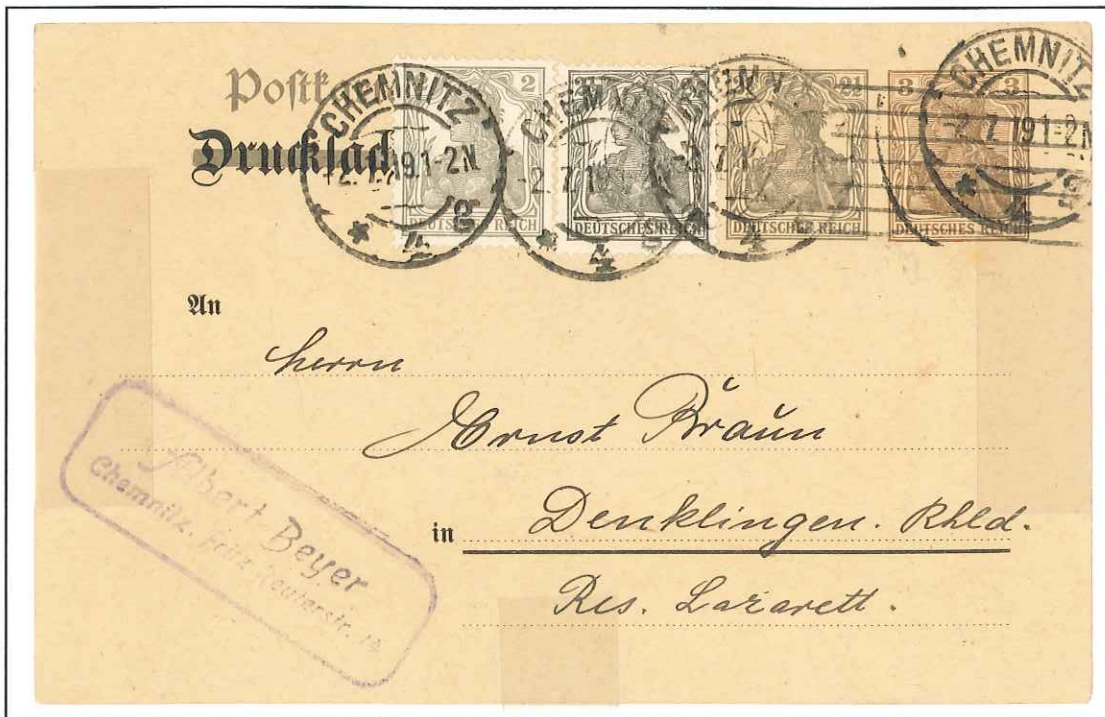 Postk
Drucksach
CHEMNITZ
-2.7.19.1-2N
* 4 g
2
DEUTSCHES REICH
CHEMNITZ
-2.7.1
* 4 g
2½
DEUTSCHES REICH
CHEMN
-2.7.1
4 g
2½
DEUTSCHES REICH
3 3
DEUTSCHES REICH
CHEMNITZ
-2.7.19.1-2N
* 4 g
An
Herrn
Ernst Braun
in Denklingen. Rhld.
Res. Lazarett.
Albert Beyer
Chemnitz, Fritz Reuterstr. 14